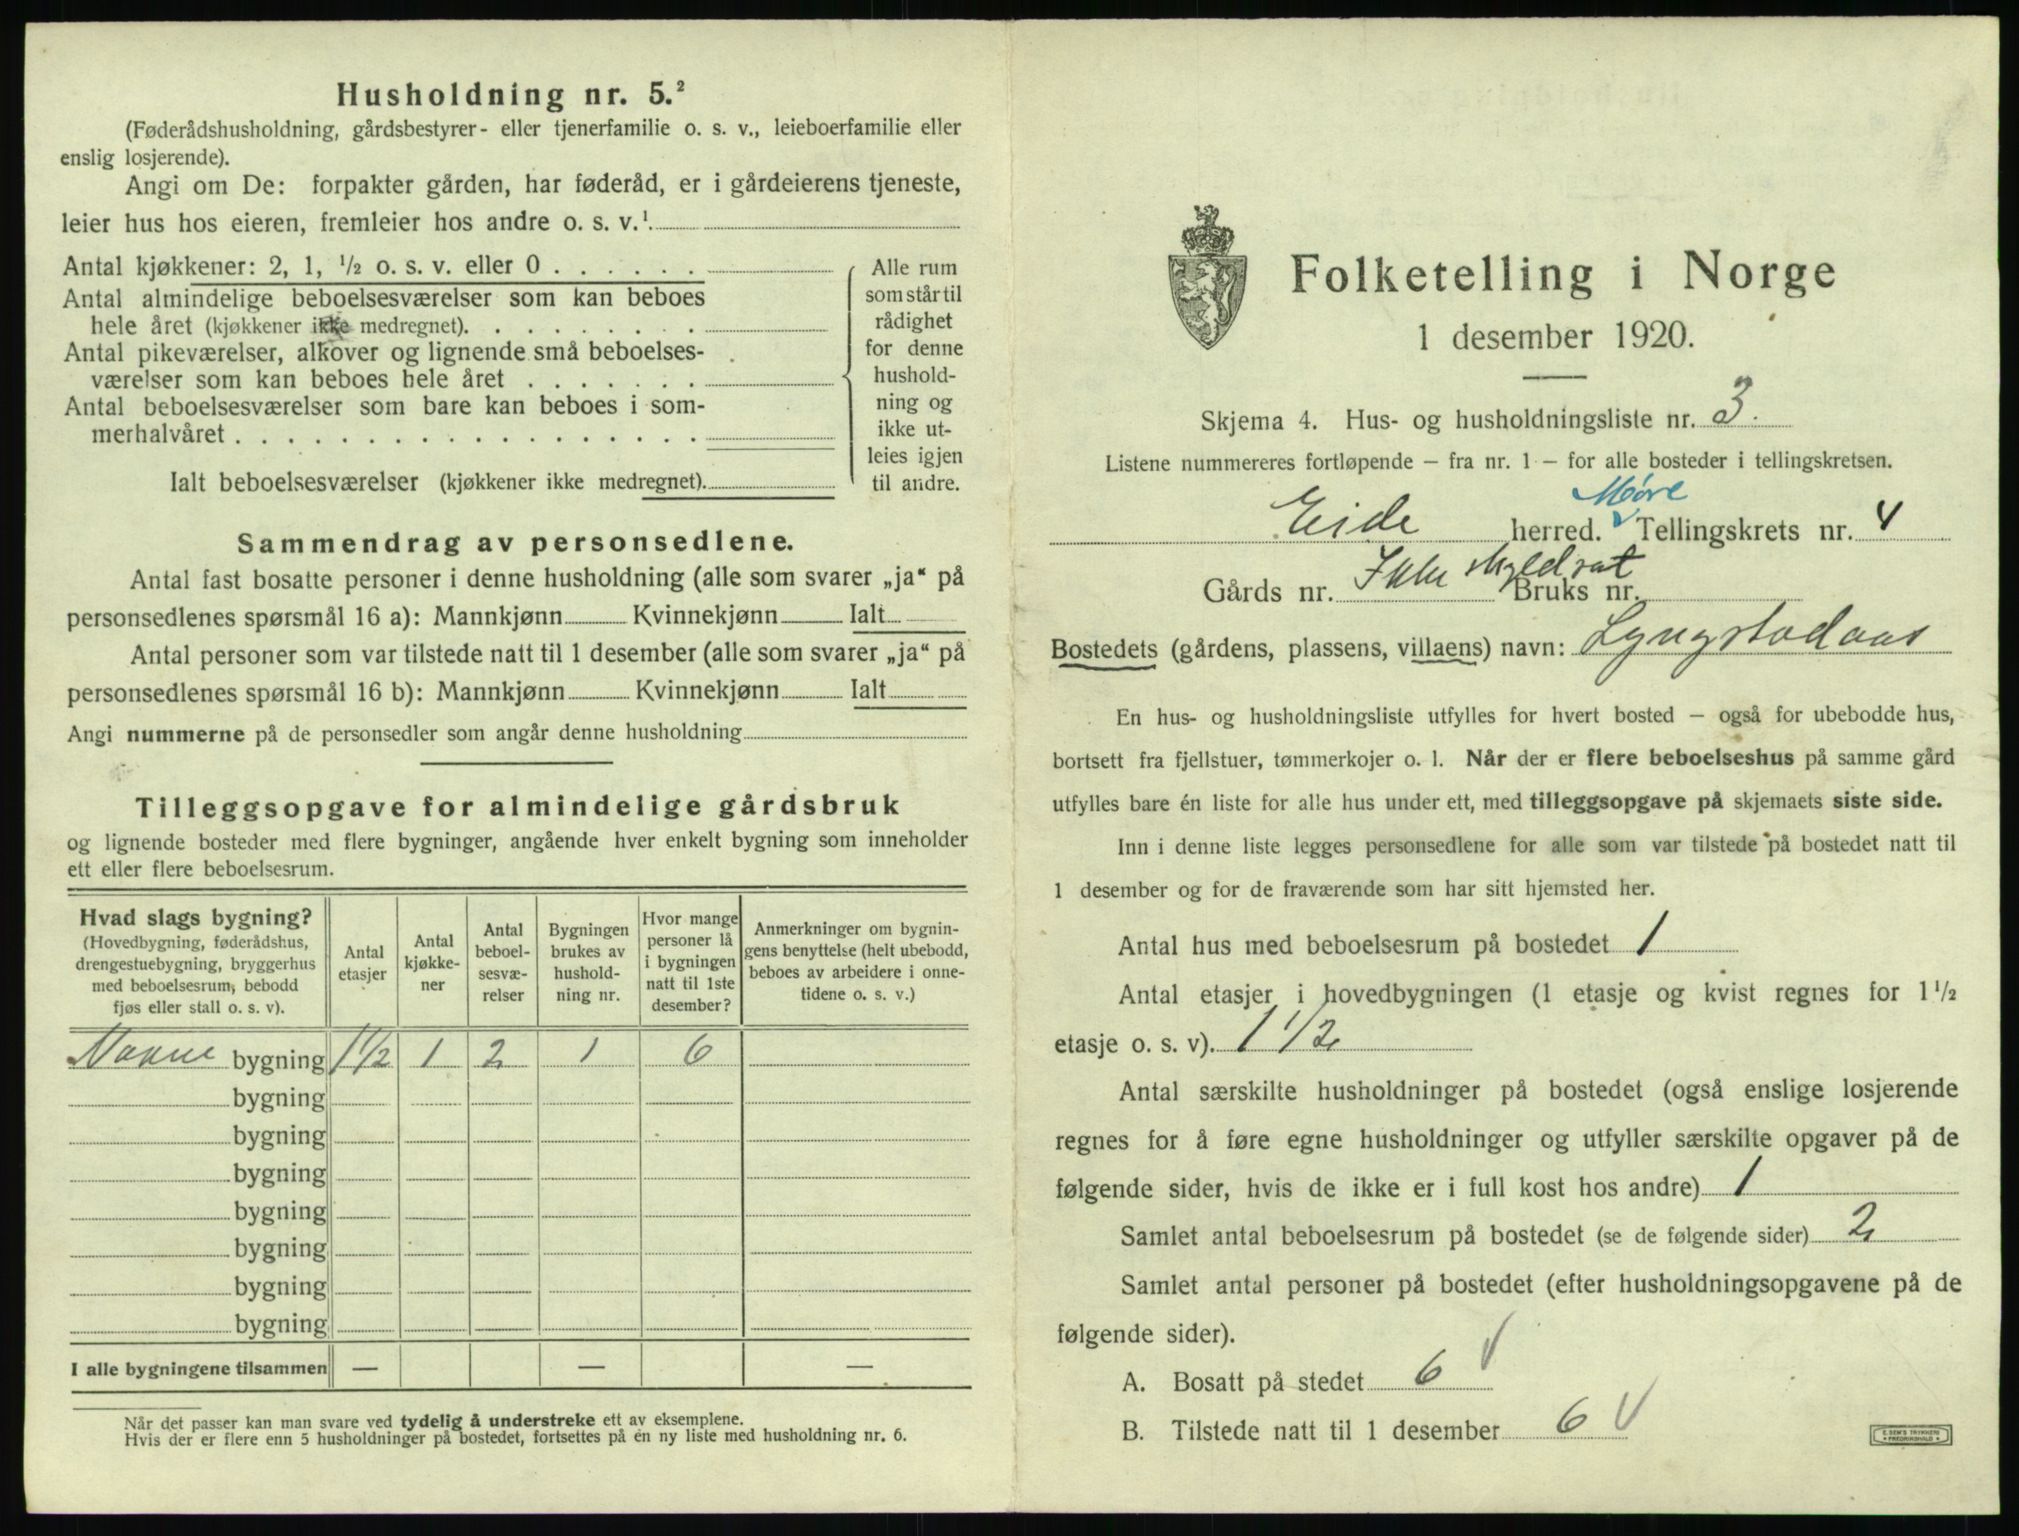 Husholdning nr. 5.²
(Føderådshusholdning, gårdsbestyrer- eller tjenerfamilie o. s. v., leieboerfamilie eller
enslig losjerende).
Angi om De: forpakter gården, har føderåd, er i gårdeierens tjeneste,
leier hus hos eieren, fremleier hos andre o. s. v.¹
Antal kjøkkener: 2, 1, ½ o. s. v. eller 0 . . . . . .
Antal almindelige beboelsesværelser som kan beboes
hele året (kjøkkener ikke medregnet). . . . . . . . .
Antal pikeværelser, alkover og lignende små beboelses-
værelser som kan beboes hele året . . . . . . .
Antal beboelsesværelser som bare kan beboes i som-
merhalvåret . . . . . . . . . . . . . . . . . .
Ialt beboelsesværelser (kjøkkener ikke medregnet).
Alle rum
som står til
rådighet
for denne
hushold-
ning og
ikke ut-
leies igjen
til andre.
Sammendrag av personsedlene.
Antal fast bosatte personer i denne husholdning (alle som svarer „ja“ på
personsedlenes spørsmål 16 a): Mannkjønn Kvinnekjønn Ialt
Antal personer som var tilstede natt til 1 desember (alle som svarer „ja“ på
personsedlenes spørsmål 16 b): Mannkjønn Kvinnekjønn Ialt
Angi nummerne på de personsedler som angår denne husholdning
Tilleggsopgave for almindelige gårdsbruk
og lignende bosteder med flere bygninger, angående hver enkelt bygning som inneholder
ett eller flere beboelsesrum.
Hvad slags bygning?
(Hovedbygning, føderådshus,
drengestuebygning, bryggerhus
med beboelsesrum, bebodd
fjøs eller stall o. s. v).
Antal
etasjer
Antal
kjøkke-
ner
Antal
beboel-
sesvæ-
relser
Bygningen
brukes av
hushold-
ning nr.
Hvor mange
personer lå
i bygningen
natt til 1ste
desember?
Anmerkninger om bygnin-
gens benyttelse (helt ubebodd,
beboes av arbeidere i onne-
tidene o. s. v.)
bygning 1½ 1 2 1 6
bygning
bygning
bygning
bygning
bygning
bygning
bygning
I alle bygningene tilsammen — — —
Når det passer kan man svare ved tydelig å understreke ett av eksemplene.
Hvis der er flere enn 5 husholdninger på bostedet, fortsettes på én ny liste med husholdning nr. 6.
Folketelling i Norge
1 desember 1920.
Skjema 4. Hus- og husholdningsliste nr. 3.
Listene nummereres fortløpende — fra nr. 1 — for alle bosteder i tellingskretsen.
Møre
Eide herred. Tellingskrets nr. 4
Gårds nr. Ikke skyldsat Bruks nr.
Bostedets (gårdens, plassens, villaens) navn: Lyngstadaas
En hus- og husholdningsliste utfylles for hvert bosted — også for ubebodde hus,
bortsett fra fjellstuer, tømmerkojer o. l. Når der er flere beboelseshus på samme gård
utfylles bare én liste for alle hus under ett, med tilleggsopgave på skjemaets siste side.
Inn i denne liste legges personsedlene for alle som var tilstede på bostedet natt til
1 desember og for de fraværende som har sitt hjemsted her.
Antal hus med beboelsesrum på bostedet 1
Antal etasjer i hovedbygningen (1 etasje og kvist regnes for 1½
etasje o. s. v). 1 1/2
Antal særskilte husholdninger på bostedet (også enslige losjerende
regnes for å føre egne husholdninger og utfyller særskilte opgaver på de
følgende sider, hvis de ikke er i full kost hos andre) 1
Samlet antal beboelsesrum på bostedet (se de følgende sider) 2
Samlet antal personer på bostedet (efter husholdningsopgavene på de
følgende sider).
A. Bosatt på stedet 6
B. Tilstede natt til 1 desember 6
E. SEM'S TRYKKERI
FREDRIKSHALD